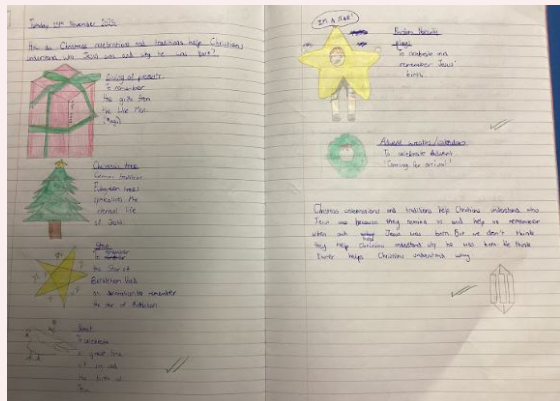 Tuesday November
How do Christmas celebrations and traditions help Christians
understand who Jesus was and why he was born?
Giving of presents
To remember
the gifts from
the Wise Men
(Magi)
Christmas trees
Evergreen trees
symbolises the
eternal life
of Jesus
Star
To
the Star of
Bethlehem
to remember
the star of Bethlehem
Feast
To celebrate
a great time
of
the birth of
Jesus
I'M A STAR!
plays
To celebrate and
remember Jesus'
birth
Advent wreaths/calendars
To celebrate Advent
'Coming for arrival'
Christmas celebrations and traditions help Christians understand who
Jesus was because they and help us remember
when and Jesus was born. But we don't think
they help Christians understand why he was born. We think
Easter helps Christians understand why